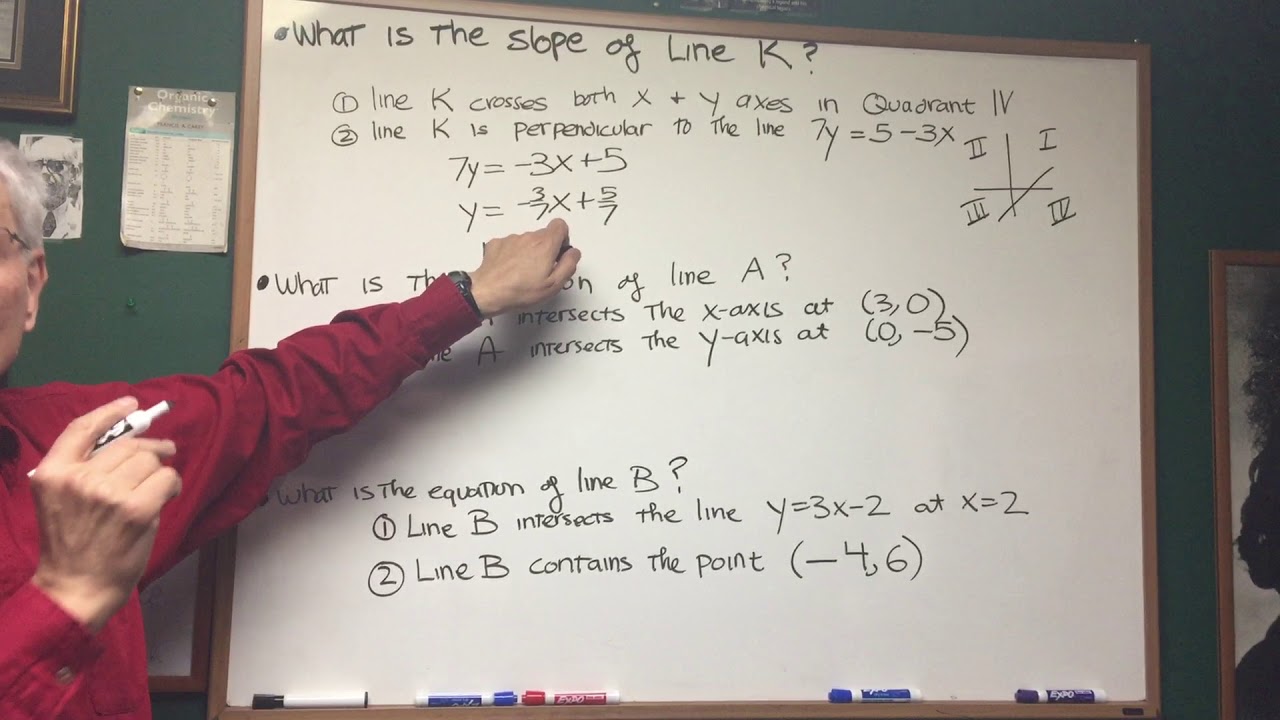 • What is the slope of Line K?
① line K crosses both x + y axes in Quadrant IV
② line K is perpendicular to the line 7y = 5 - 3x
7y = -3x + 5
y = -3/7x + 5/7
II I
III IV
• What is of line A?
intersects the x-axis at (3, 0)
A intersects the y-axis at (0, -5)
What is the equation of line B?
① Line B intersects the line y = 3x - 2 at x = 2
② Line B contains the point (-4, 6)
Organic
Chemistry
EXPO
EXPO
EXPO